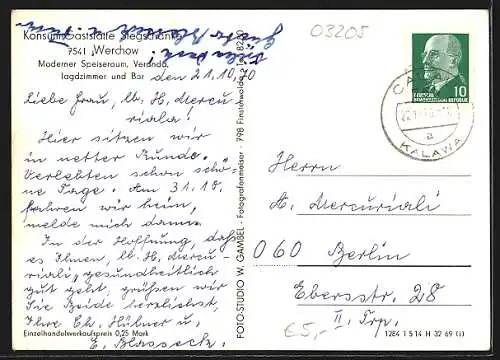 03205
Konsum-Gaststätte Ziegschänke
7541 Werchow
Moderner Speiseraum, Veranda,
Jagdzimmer und Bar
den 21.10.70
Liebe Frau, lb. H. Mercu-
riali!
Hier sitzen wir
in netter Runde.
Verlebten schon schö-
ne Tage. Am 31.10.
fahren wir heim,
melde mich dann.
In der Hoffnung, daß
es Ihnen, lb. H. Mercu-
riali, gesundheitlich
gut geht, grüßen wir
Sie Beide herzlichst,
Ihre Ch. Hübner u.
E. Blasseck.
Einzelhandelverkaufspreis 0,25 Mark
FOTO-STUDIO W. GAMBEL - Fotografenmeister - 798 Finsterwalde
10
DEUTSCHE
DEMOKRATISCHE REPUBLIK
CALAU
a
KALAWA
Herrn
A. Mercuriali
1060 Berlin
Ebersstr. 28
II. Trp.
€ 5,-
1284 1 5 14 H 32 69 (1)